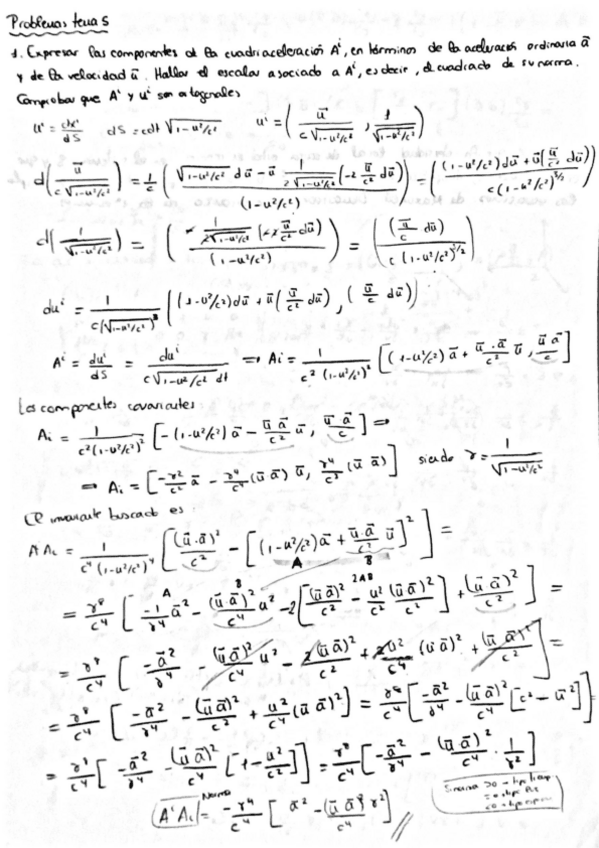 Problemas tema 5
1. Expresar las componentes de la cuadriaceleración Aⁱ, en términos de la aceleración ordinaria a⃗
y de la velocidad u⃗. Hallar el escalar asociado a Aⁱ, es decir, el cuadrado de su norma.
Comprobar que Aⁱ y uⁱ son ortogonales
uⁱ = dxⁱ/dS   dS = cdt √(1-u²/c²)   uⁱ = ( u⃗/(c√(1-u²/c²)), 1/√(1-u²/c²) )
d( u⃗/(c√(1-u²/c²)) ) = 1/c ( (√(1-u²/c²) du⃗ - u⃗ 1/(2√(1-u²/c²)) (-2 u⃗/c² du⃗)) / (1-u²/c²) ) = ( ((1-u²/c²) du⃗ + u⃗(u⃗/c² du⃗)) / (c(1-u²/c²)^(3/2)) )
d( 1/√(1-u²/c²) ) = ( ... / (1-u²/c²) ) = ( (u⃗/c du⃗) / (c(1-u²/c²)^(3/2)) )
duⁱ = 1/(c(√(1-u²/c²))³) ( (1-u²/c²) du⃗ + u⃗(u⃗/c² du⃗), (u⃗/c du⃗) )
Aⁱ = duⁱ/dS = duⁱ/(c√(1-u²/c²) dt) ⇒ Ai = 1/(c²(1-u²/c²)²) [ (1-u²/c²) a⃗ + (u⃗·a⃗/c²) u⃗, u⃗a⃗/c ]
Las componentes covariantes:
Ai = 1/(c²(1-u²/c²)²) [ -(1-u²/c²) a⃗ - (u⃗a⃗/c²) u⃗, u⃗·a⃗/c ] ⇒
⇒ Ai = [ -γ²/c² a⃗ - γ⁴/c⁴ (u⃗a⃗) u⃗, γ⁴/c³ (u⃗a⃗) ] siendo γ = 1/√(1-u²/c²)
El invariante buscado es:
AⁱAi = 1/(c⁴(1-u²/c²)⁴) [ (u⃗·a⃗)²/c² - [ (1-u²/c²) a⃗ + (u⃗·a⃗/c²) u⃗ ]² ] =
A B
A B 2AB
= γ⁸/c⁴ [ -1/γ⁴ a⃗² - (u⃗a⃗)²/c⁴ u² - 2[ (u⃗a⃗)²/c² - u²/c⁴ (u⃗a⃗)² ] + (u⃗a⃗)²/c² ] =
= γ⁸/c⁴ [ -a⃗²/γ⁴ - (u⃗a⃗)²/c⁴ u² - 2(u⃗a⃗)²/c² + 2u²/c⁴ (u⃗a⃗)² + (u⃗a⃗)²/c² ] =
= γ⁸/c⁴ [ -a⃗²/γ⁴ - (u⃗a⃗)²/c² + u²/c⁴ (u⃗a⃗)² ] = γ⁸/c⁴ [ -a⃗²/γ⁴ - (u⃗a⃗)²/c⁴ [c² - u⃗²] ] =
= γ⁸/c⁴ [ -a⃗²/γ⁴ - (u⃗a⃗)²/c⁴ [1 - u²/c²] ] = γ⁸/c⁴ [ -a⃗²/γ⁴ - (u⃗a⃗)²/c⁴ · 1/γ² ]
AⁱAi Norma = -γ⁴/c⁴ [ a⃗² - (u⃗a⃗)²γ²/c⁴ ]